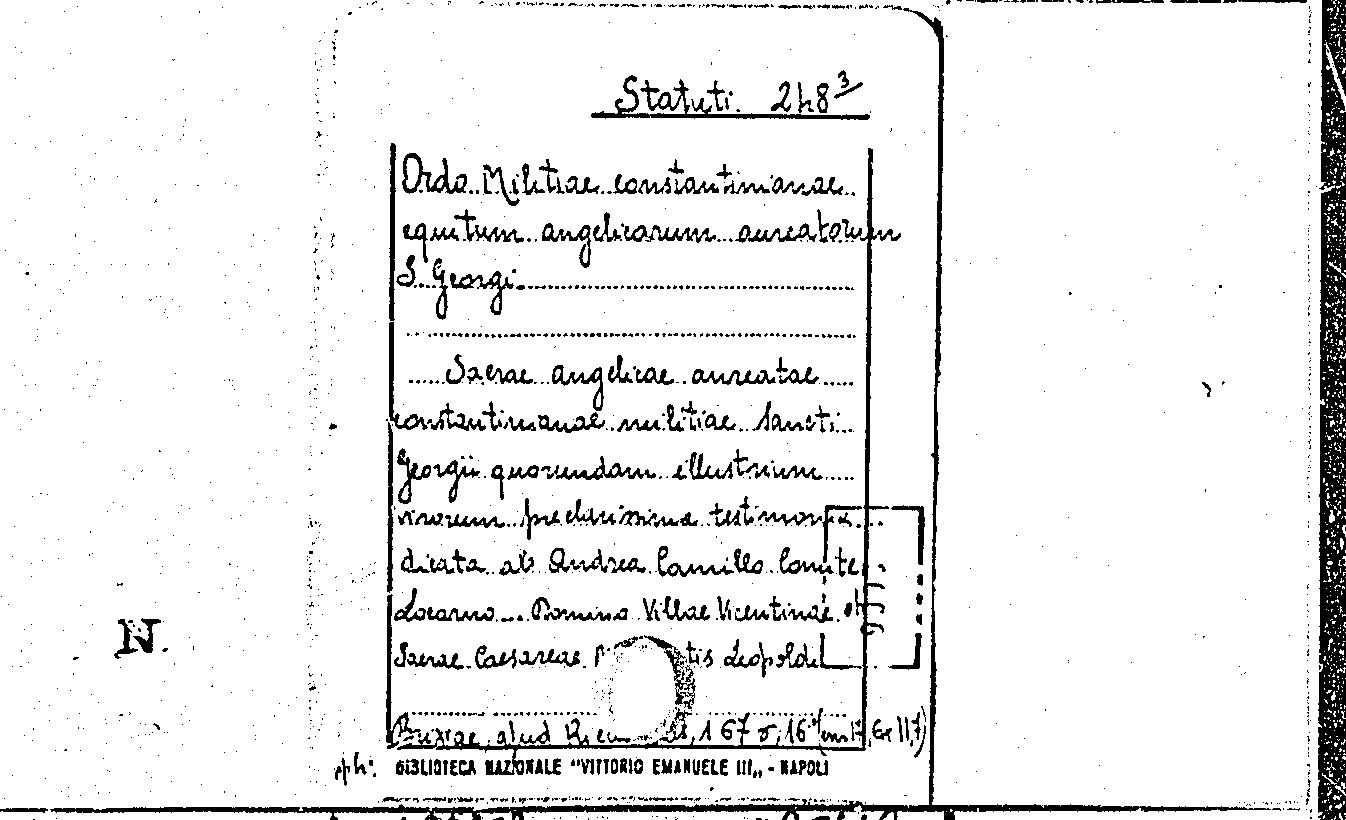 Statuti. 248³
Ordo Militiae constantinianae
equitum angelicarum aureatorum
S. Georgi.
Sacrae angelicae aureatae
constantinianae militiae Sancti
Georgii quorundam illustrium
virorum preclarissima testimonia
dicata ab Andrea Camillo Comite
Locarno... Domino Villae Vicentinae et
Sacrae Caesareae tis Leopoldi
Buxiae, apud 167
N.
BIBLIOTECA NAZIONALE "VITTORIO EMANUELE III„ - NAPOLI